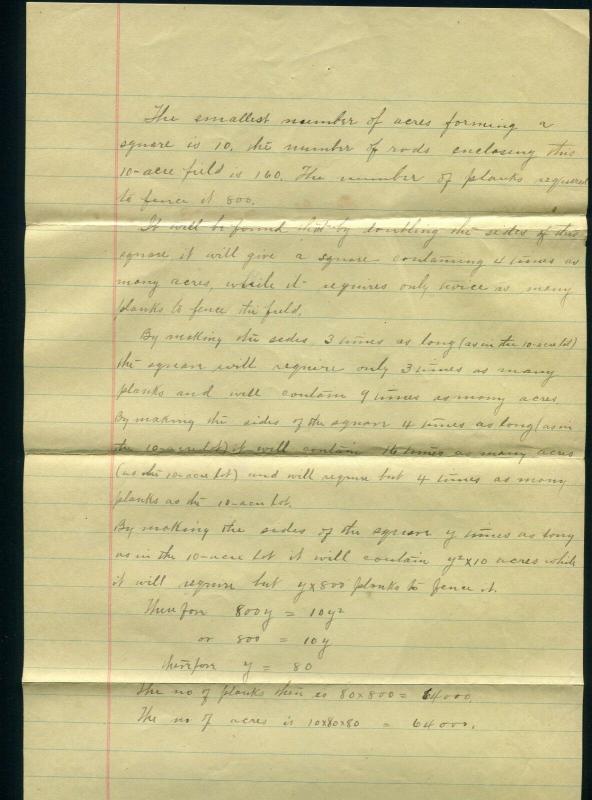 The smallest number of acres forming a
square is 10, the number of rods enclosing this
10-acre field is 160. The number of planks required
to fence it 800.
It will be found that by doubling the sides of this
square it will give a square containing 4 times as
many acres, while it requires only twice as many
planks to fence the field.
By making the sides 3 times as long (as in the 10-acre lot)
the square will require only 3 times as many
planks and will contain 9 times as many acres
By making the sides of the square 4 times as long (as in
the 10-acre lot) it will contain 16 times as many acres
(as the 10-acre lot) and will require but 4 times as many
planks as the 10-acre lot.
By making the sides of the square y times as long
as in the 10-acre lot it will contain y²x10 acres while
it will require but yx800 planks to fence it.
Therefore 800y = 10y²
or 800 = 10y
therefore y = 80
The no of planks then is 80x800 = 64000.
The no of acres is 10x80x80 = 64000.